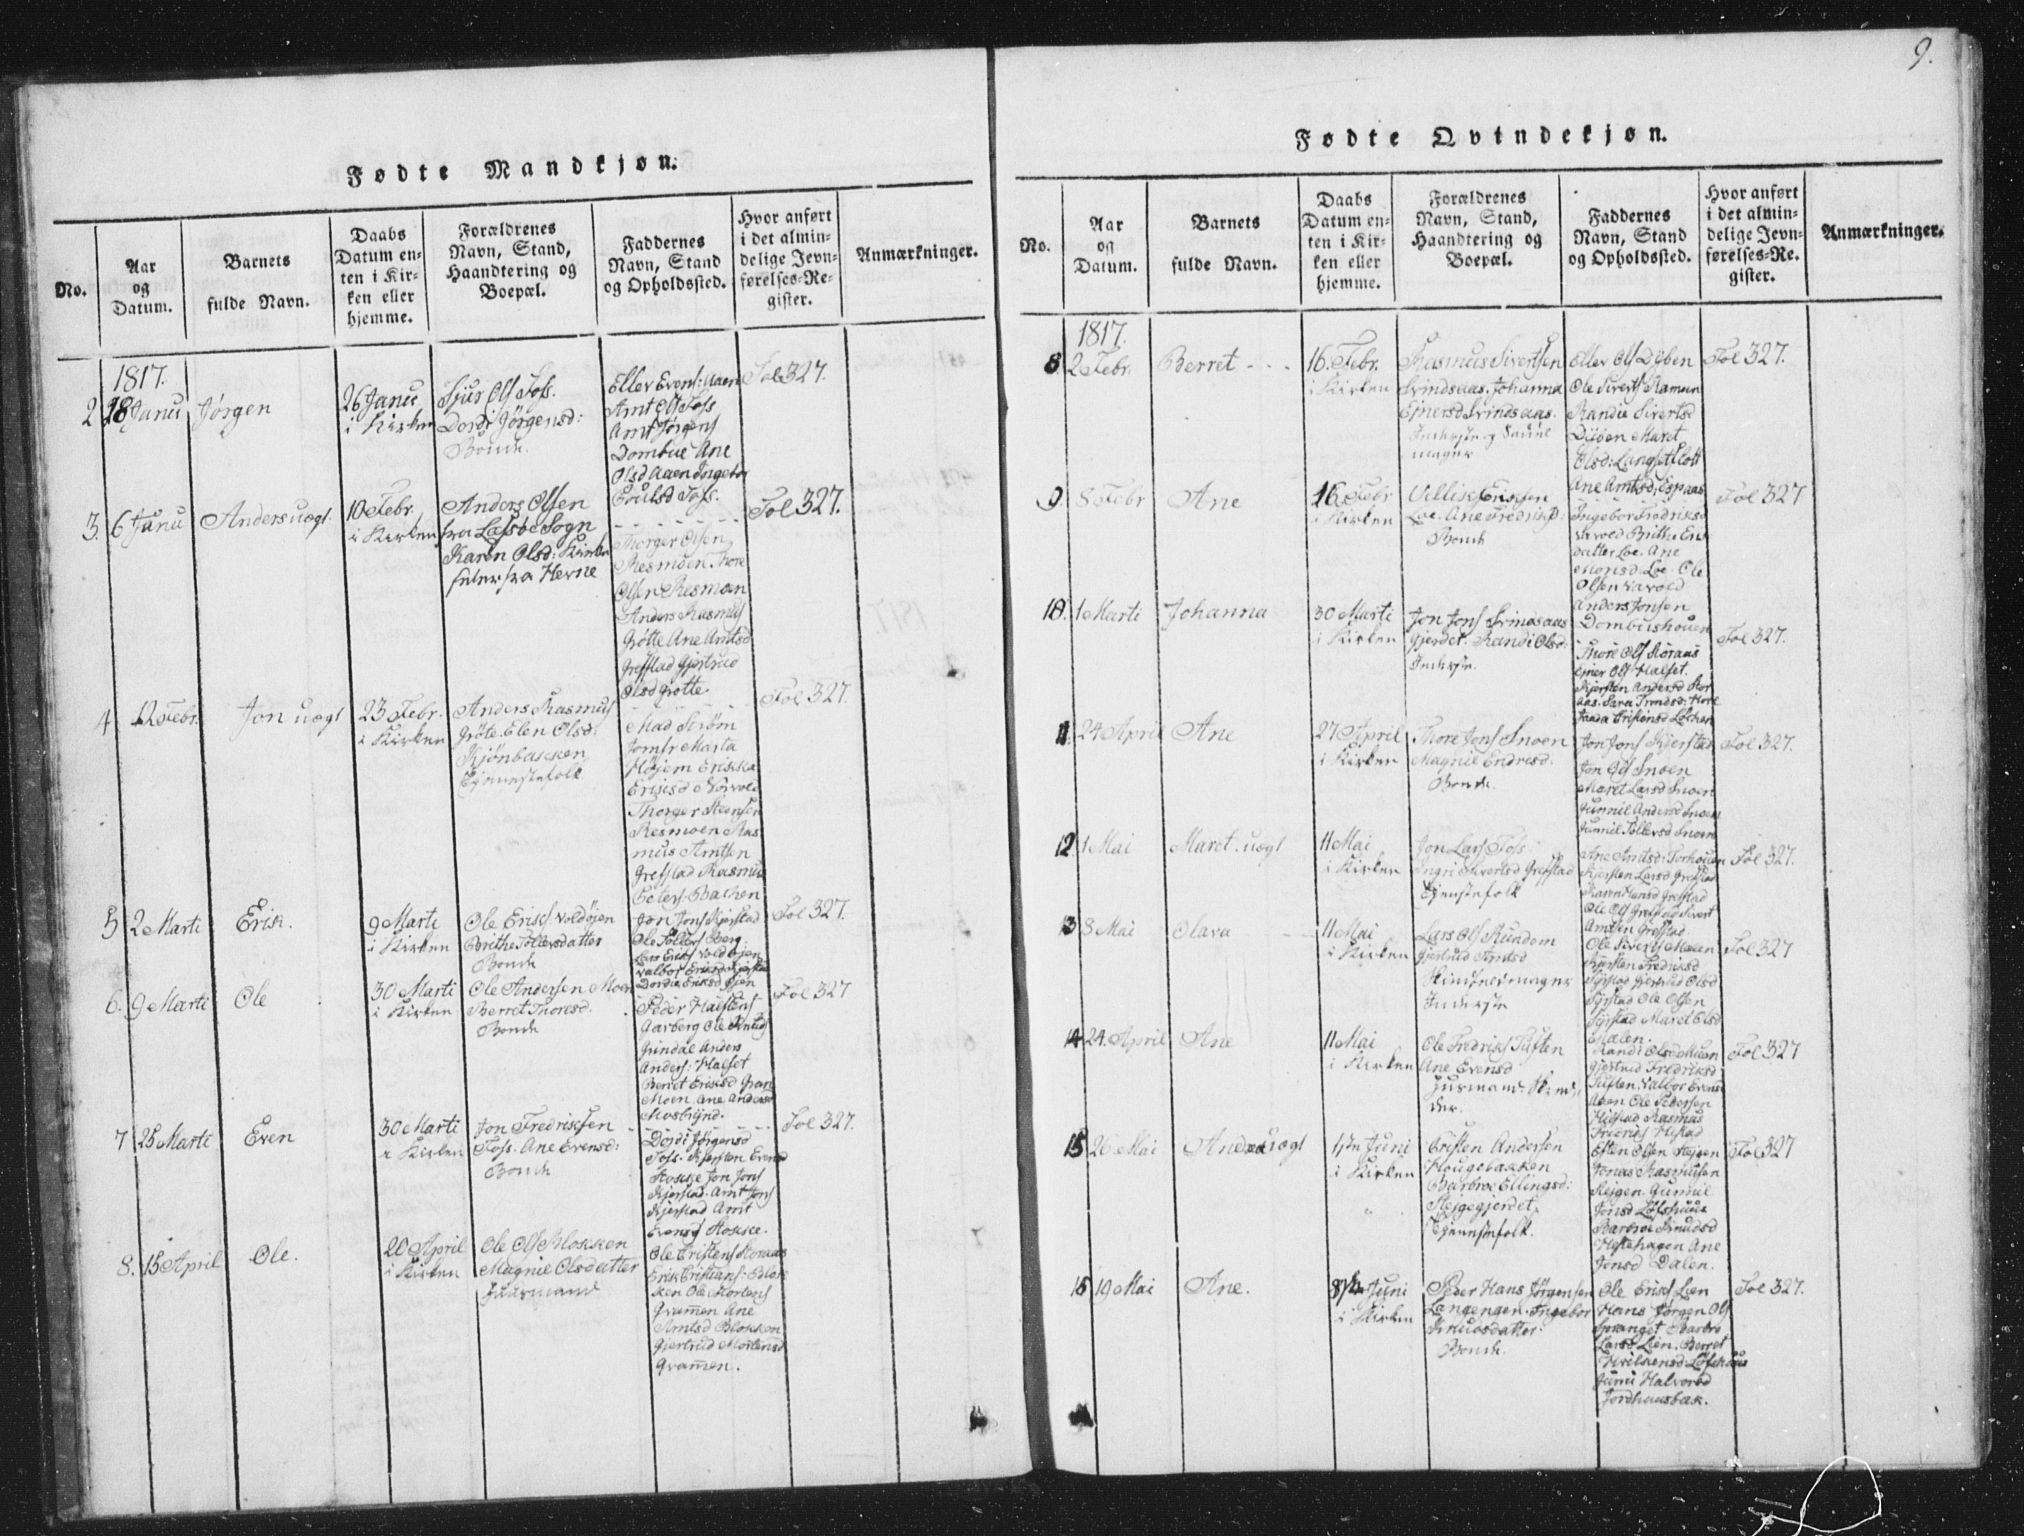 9.
Fødte Mandkjøn.
No.
Aar
og
Datum.
Barnets
fulde Navn.
Daabs
Datum en-
ten i Kir-
ken eller
hjemme.
Forældrenes
Navn, Stand,
Haandtering og
Boepæl.
Faddernes
Navn, Stand
og Opholdssted.
Hvor anført
i det almin-
delige Jevn-
førelses-Re-
gister.
Anmærkninger.
1817.
2 18 Janu Jørgen
26 Janu
i Kirken
Sjur Ols Foss.
Dordi Jørgensd:
Bonde.
Eller Evens: Aaen
Amt Ols Foss
Amt Jørgens
Dombue Ane
Olsd Aaen Ingebor
Foss.
Fol 327.
3. 6 Janu Anders uægt
10 Febr.
i Kirken
Anders Olsen
fra Sogn
Karen Olsd:
fra Herne
Thorger Olsen
Resmoen Thore
Olsen Resmoen
Anders Rasmus
Grøtte Ane Amtsd
Grefstad Gjertrud
Olsd Grøtte.
Fol 327.
4 12 Febr. Jon uægt
23 Febr.
i Kirken
Anders Rasmus
Grøte. Elen Olsd:
Kjønbakken
Tjenestefolk
Mad Strøm
Jomfr Marta
Højem Erikka
Thorger Steensen
Resmoen Ras
mus Amtsen
Grefstad Rasmus
Peters: Bachen
Fol 327.
5 2 Marti Erik.
9 Marti
i Kirken
Ole Erichs Voldøjen
Brithe Tollersdatter
Bonde
Jon Jons Kjerstad
Ole Tollers Berg
Lars Eriks Voldøjen
Fol 327.
6. 9 Marti Ole
30 Marti
i Kirken
Ole Andersen Moen
Berret Thoresd:
Bonde
Peder Halstens
Aarberg Ole Knuds
Grindal Anders
Anders: Halset
Berret Eriksd Gran
Moen. Ane Andersd
Fol 327
7 25 Marti Even
30 Marti
i Kirken
Jon Fredrichsen
Foss. Ane Evensd:
Bonde
Dordi Jørgensd
Foss. Kjersten Evensd
Hokke Jon Jons
Kjerstad. Amt Jons
Kjerstad Amt
Evens Hokke.
Fol 327.
8. 15 April Ole.
20 April
i Kirken
Ole Ols Blokken
Magnil Olsdatter
Huusmand
Ole Cristens Roraas
Erik Cristians: Blok
ken Ole Mortens
Gramen Ane
Amtsd Blokken
Gjertrud Mortensd
Gramen.
Fødte Qvindekjøn.
No.
Aar
og
Datum.
Barnets
fulde Navn.
Daabs
Datum en-
ten i Kir-
ken eller
hjemme.
Forældrenes
Navn, Stand,
Haandtering og
Boepæl.
Faddernes
Navn, Stand
og Opholdssted.
Hvor anført
i det almin-
delige Jevn-
førelses-Re-
gister.
Anmærkninger.
1817.
8 2 Febr. Berret
16. Febr.
i Kirken
Rasmus Sivertsen
Svindsaas. Johanna
Ejnersd Svindsaas.
Inderste
mager
Ole Siverts Ramun
Randie Sivertsd
Maret
Ane Amtsd: Espaas
Fol 327.
9. 8 Febr Ane
16 Febr
i Kirken
Loe. Ane Fredriksd:
Bonde
Ingebor Fredriksd
Varvold Brithe
datter Loe. Ane
Monsd: Loe. Ole
Olsen Varvold
Fol 327
10. 1 Marti Johanna
30 Marti
i Kirken
Jon Jons Svindsaas
gjerdet. Randi Olsd:
Inderste.
Anders Jonsen
Dombushouen
Thore Ols Roraas
Ejner Ols Halset.
Kjersten Andersd
Fol 327.
11. 24 April Ane
27 April
i Kirken
Thore Jons Snoen
Magnil Endresd:
Bonde.
Jon Jons Kjerstad
Jon Ols Snoen
Maret Larsd Snoen
Gunnil Andersd Snoen
Gunnil Tollersd Snoen
Fol 327.
12 1 Mai Maret. uægt
11 Mai
i Kirken
Jon Lars Foss
Ingri Sivertsd Grefstad
Tjenestefolk
Ane Amtsd:
Kjersten Larsd Grefstad
Karen Hansd Grefstad
Ole Ols Grefstad Sivert
Amtsen Grefstad
Fol 327.
13 8 Mai Olava
11 Mai
i Kirken
Lars Ols Rundom
Gjertrud Amtsd
Inderste
Ole Siverts Malen
Kjersten Fredriksd
Syrstad Gjertrud Olsd
Syrstad Ole Olsen
Syrstad Maret Olsd
Malen.
Fol 327
14 24. April Ane
11 Mai
i Kirken
Ole Fredrichs Tuften
Ane Evensd
Husmand.
Randi Olsd
Gjertrud Fredriksd
Tuften. Valbor Evensd
Aaen Ole Pedersen
Histad Rasmus
Fredrich Histad
Fol 327
15 26 Mai Andrea uægt
1ste Juni
i Kirken
Cristen Andersen
Hougebakken
Barbroe Ellingsd:
Stejgegjerdet,
Tjenestefolk.
Esten Olsen Stejgen
Jonas Rasmusen
Stejgen. Gunnil
Jonsd Løfshuus
Barbroe Knudsd
Hestehagen Ane
Jonsd Dalen.
Fol 327
16 19 Mai Ane.
8de Juni
i Kirken
Peder Hans Jørgensen
Langengen. Ingebor
Bonde.
Ole Erichs Lien
Hans Jørgen Ols
Spranget Barbro
Larsd Lien. Berret
Løfshuus
Halvorsd
Jordhuusbak.
Fol 327.